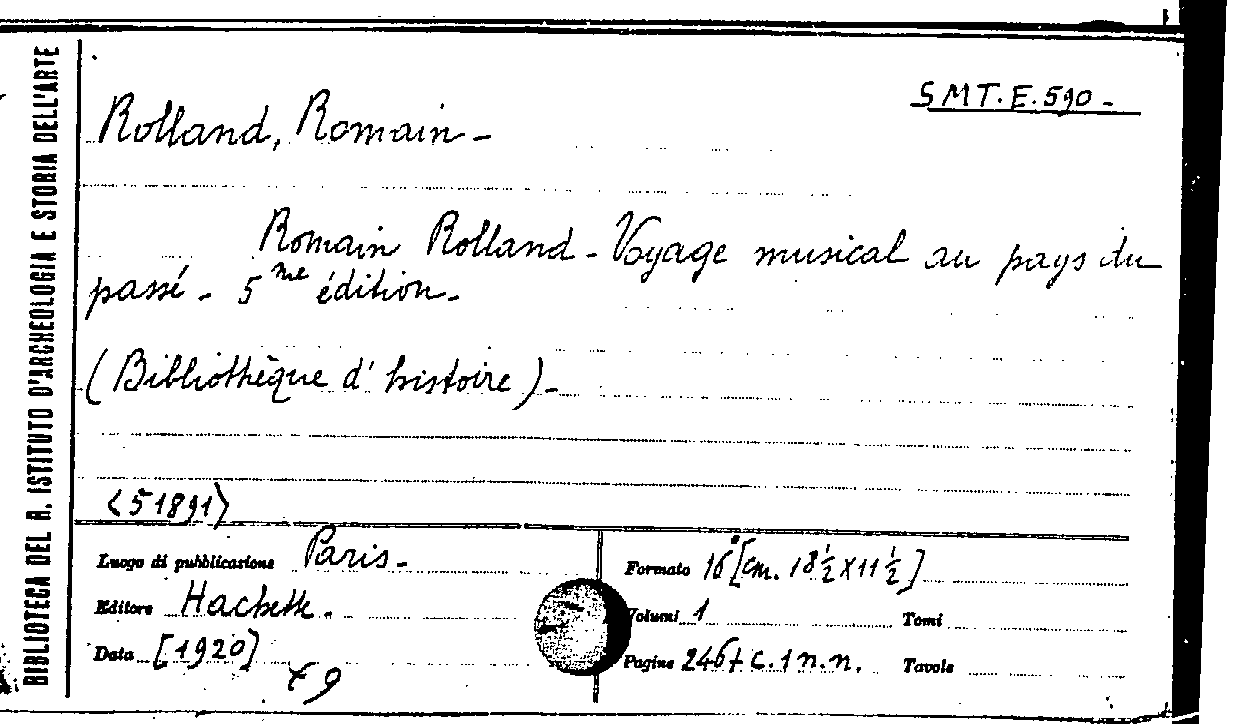 BIBLIOTECA DEL R. ISTITUTO D'ARCHEOLOGIA E STORIA DELL'ARTE
S M T. E. 590 -
Rolland, Romain -
Romain Rolland - Voyage musical au pays du
passé - 5me édition -
(Bibliothèque d'histoire) -
<51891>
Luogo di pubblicazione Paris -
Editore Hachette.
Data [1920]
Formato 16° [cm. 18 ½ x 11 ½]
Volumi 1 Tomi
Pagine 246 + c. 1 n. n. Tavole